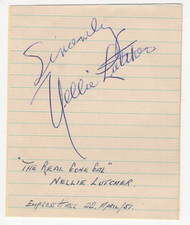 Sincerely
Nellie Lutcher
"THE REAL GONE GAL"
NELLIE LUTCHER.
EMPRESS HALL 22. APRIL/51.